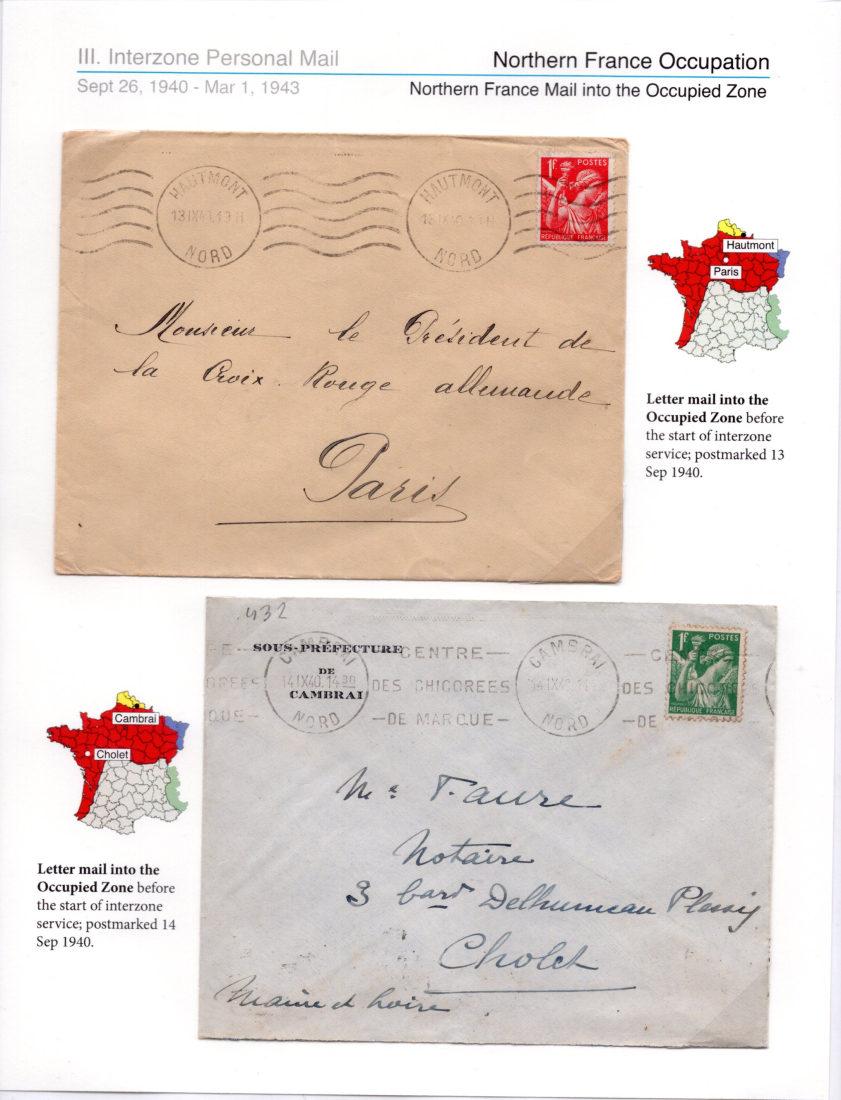 III. Interzone Personal Mail
Northern France Occupation
Sept 26, 1940 - Mar 1, 1943
Northern France Mail into the Occupied Zone
HAUTMONT
13IX40.19H
NORD
HAUTMONT
NORD
1F POSTES
RÉPUBLIQUE FRANÇAISE
Monsieur le Président de
la Croix Rouge allemande
Paris
Hautmont
Paris
Letter mail into the
Occupied Zone before
the start of interzone
service; postmarked 13
Sep 1940.
432
SOUS-PRÉFECTURE
DE
CAMBRAI
CAMBRAI
14IX40.14 30
NORD
CENTRE
DES CHICOREES
-DE MARQUE-
CAMBRAI
NORD
DES CHICOREES
-DE
1F POSTES
RÉPUBLIQUE FRANÇAISE
Me Faure
Notaire
3 bard Delhumeau Plessis
Cholet
Maine et Loire
Cambrai
Cholet
Letter mail into the
Occupied Zone before
the start of interzone
service; postmarked 14
Sep 1940.